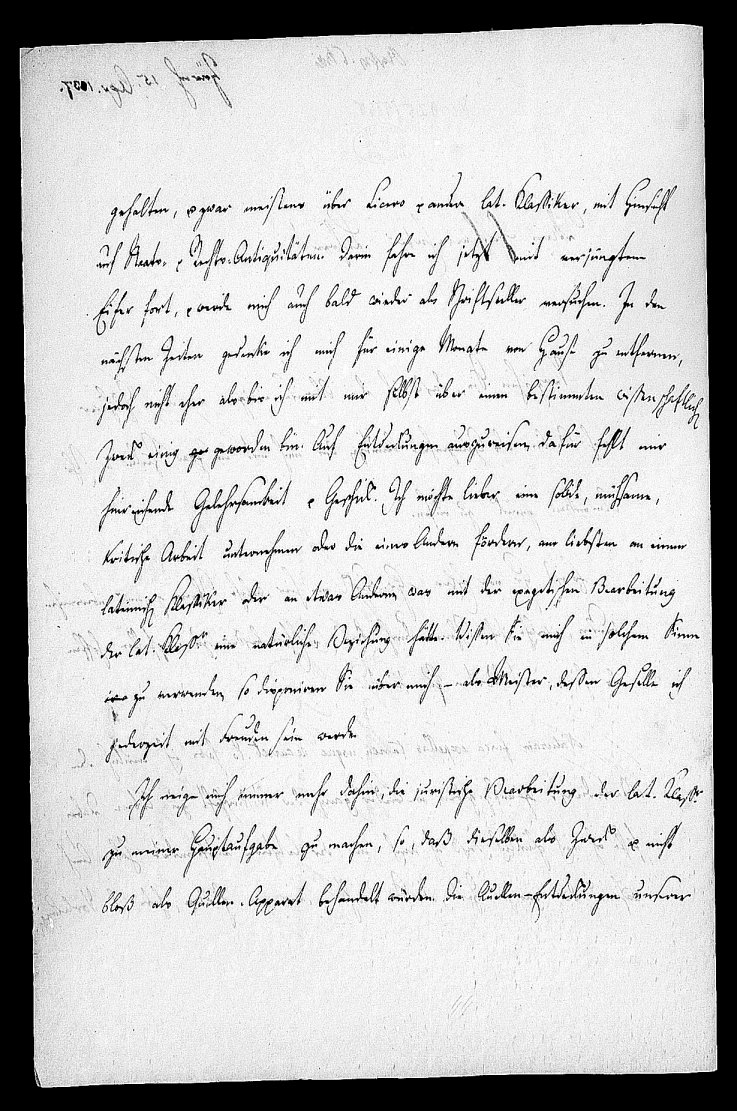 gehalten, u zwar meistens über Cicero u andere lat. Klassiker, mit Hinsicht
auf Staats- u Rechts-Antiquitäten. Darin fahre ich jetzt mit verjüngtem
Eifer fort, u werde mich auch bald wieder als Schriftsteller versuchen. In den
nächsten Zeiten gedenke ich mich für einige Monate von Hause zu entfernen,
jedoch nicht eher als bis ich mit mir selbst über einen bestimmten wissenschaftlich
Zweck einig geworden bin. Auf Entdeckungen auszureisen, dafür fehlt mir
hinreichende Gelehrsamkeit u Geschick. Ich möchte lieber eine solide, mühsame,
kritische Arbeit unternehmen oder die eines Andern fördern, am liebsten an einem
lateinisch Klassiker oder an etwas Anderm, was mit der exegetischen Bearbeitung
der lat. Klassr eine natürliche Beziehung hätte. Wissen Sie mich in solchem Sinne
zu verwenden, so disponiren Sie über mich – als Meister, dessen Geselle ich
jederzeit mit Freuden sein werde.
Ich neige mich immer mehr dahin, die juristische Bearbeitung der lat. Klassr.
zu meiner Hauptaufgabe zu machen, so, daß dieselben als Zweck u nicht
bloß als Quellen-Apparat behandelt würden. Die Quellen-Entdeckungen unserer